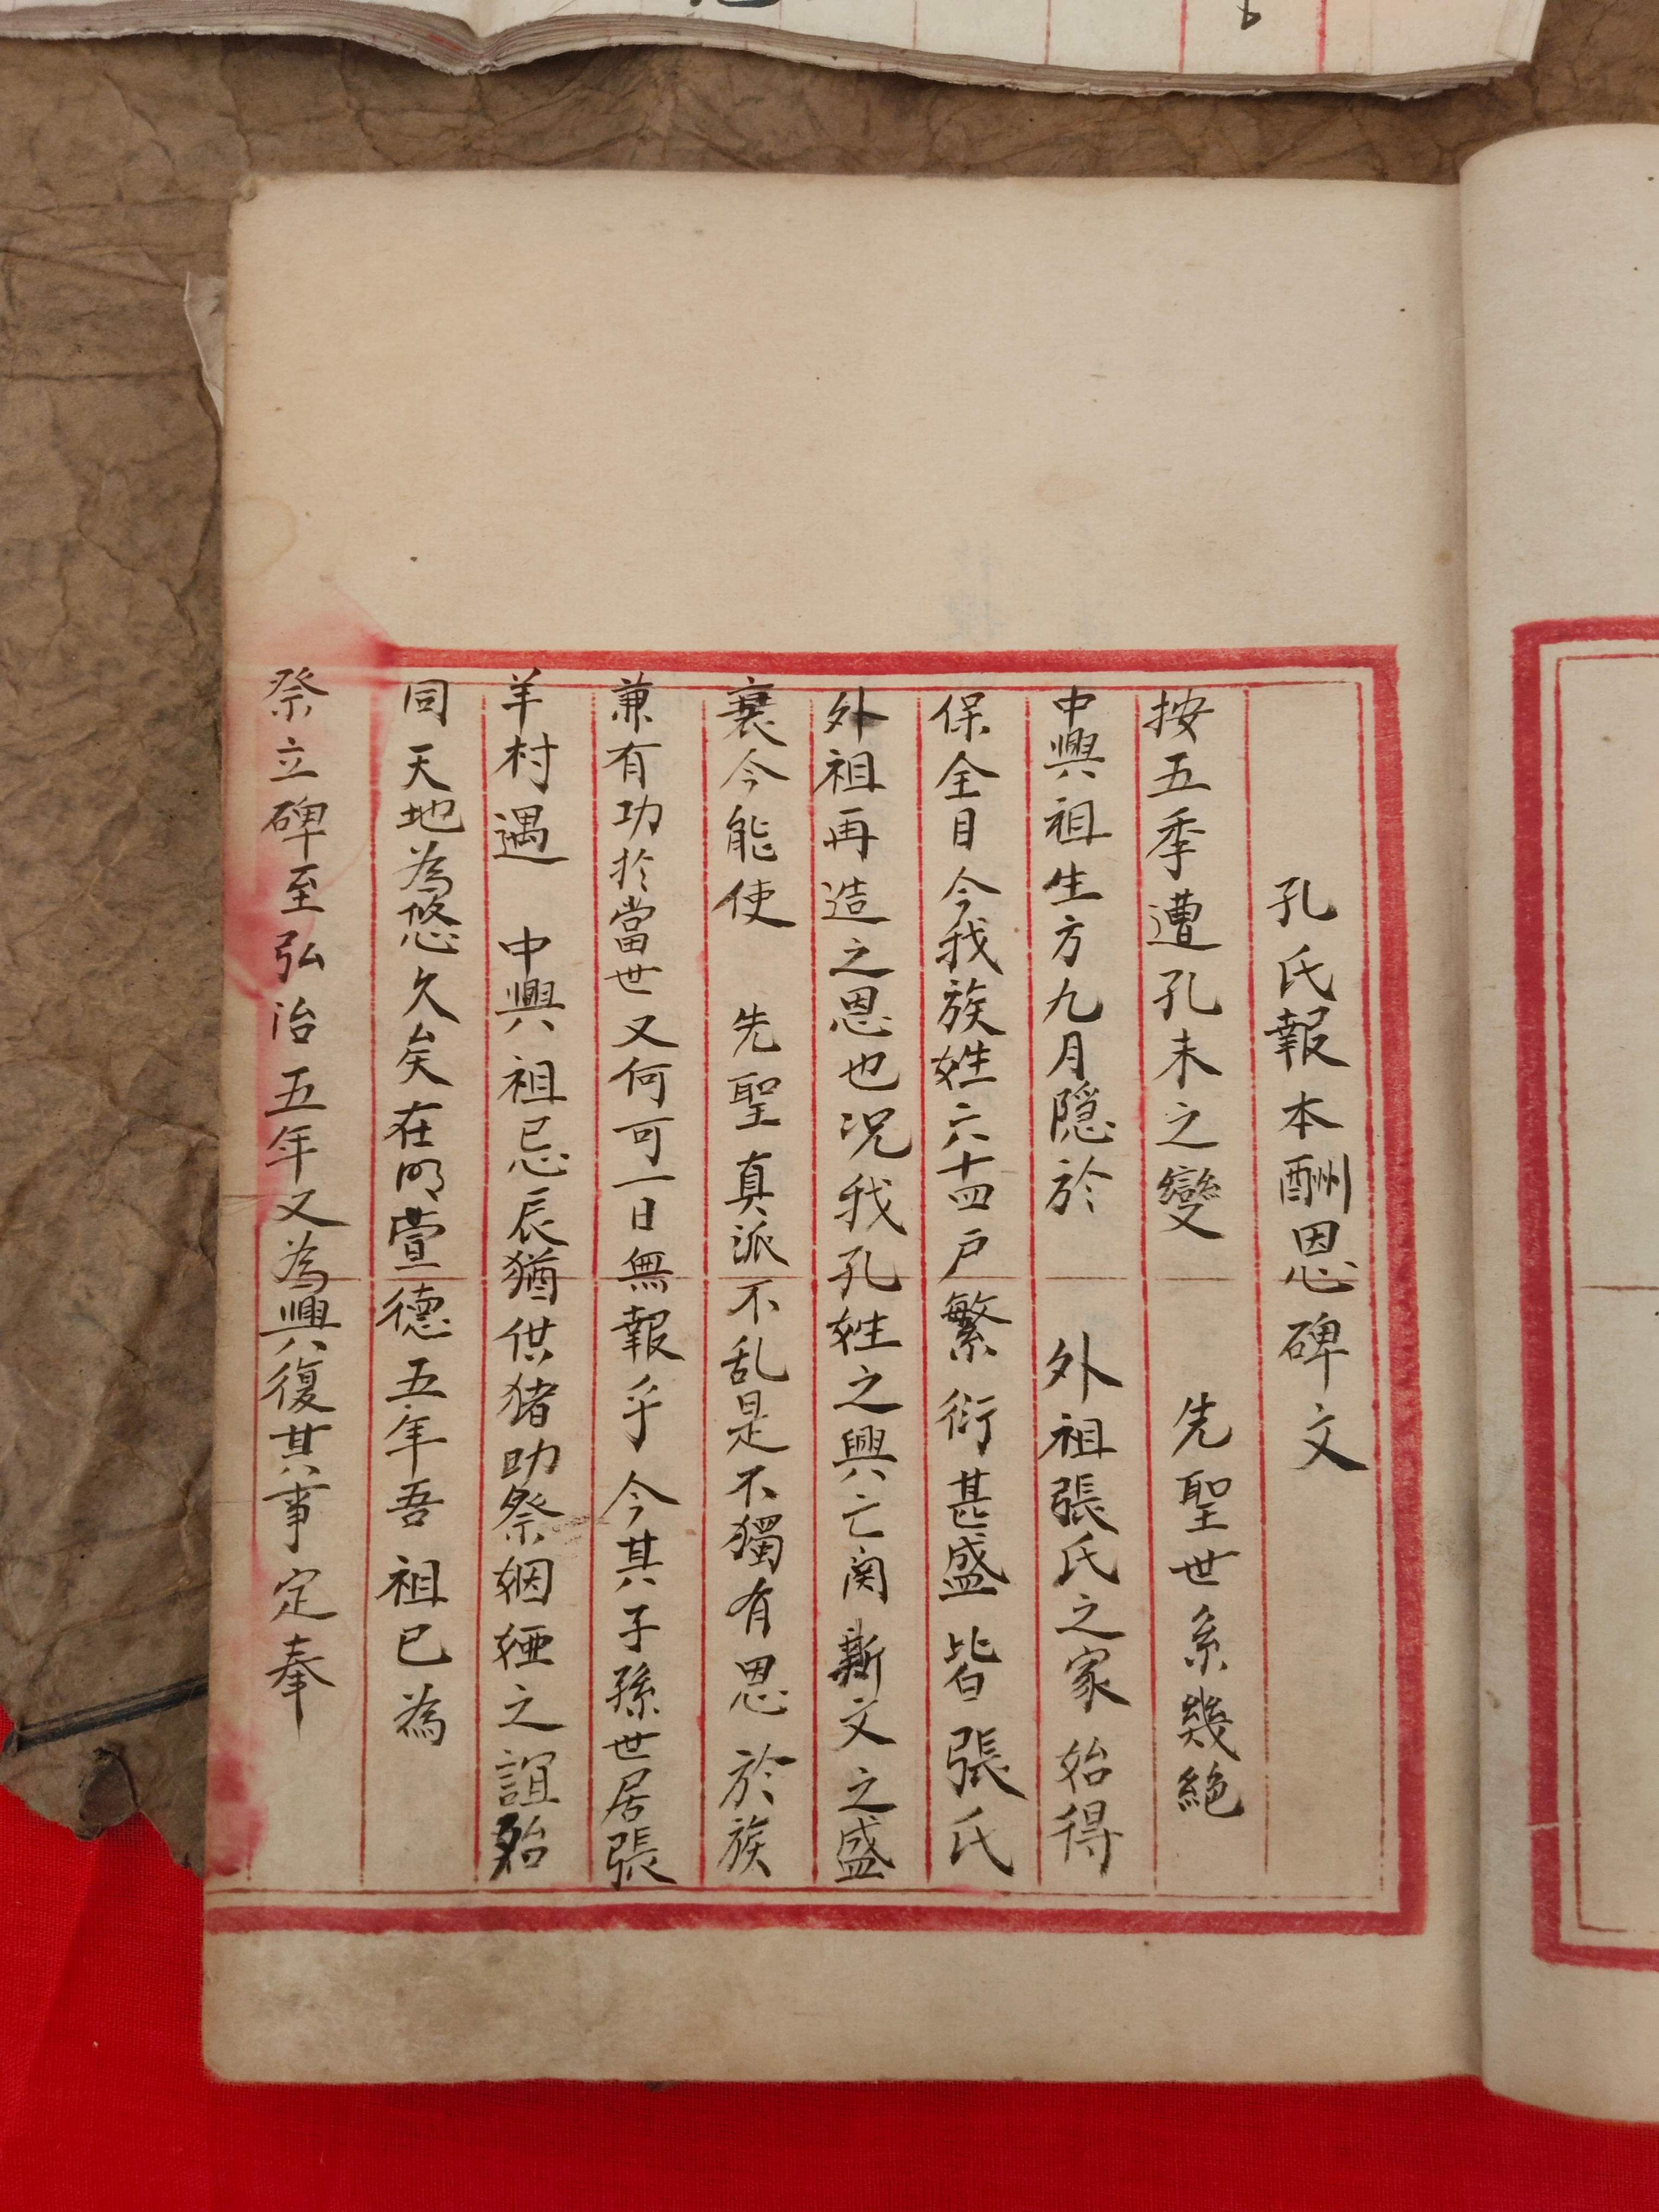 孔氏報本酬恩碑文
按五季遭孔末之變　先聖世系幾絶
中興祖生方九月隠於　外祖張氏之家始得
保全目今我族姓六十四户繁衍甚盛皆張氏
外祖再造之恩也况我孔姓之興亡関斯文之盛
衰今能使　先聖真派不乱是不獨有恩於族
兼有功於當世又何可一日無報乎今其子孫世居張
羊村遇　中興祖忌辰猶供猪助祭姻婭之誼殆
同天地為悠久矣在明萱德五年吾祖已為
祭立碑至弘治五年又為興復其事定奉